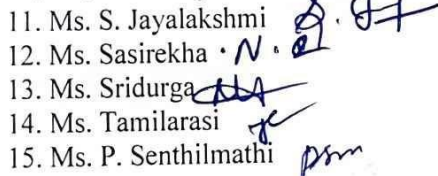 11. Ms. S. Jayalakshmi
12. Ms. Sasirekha
13. Ms. Sridurga
14. Ms. Tamilarasi
15. Ms. P. Senthilmathi